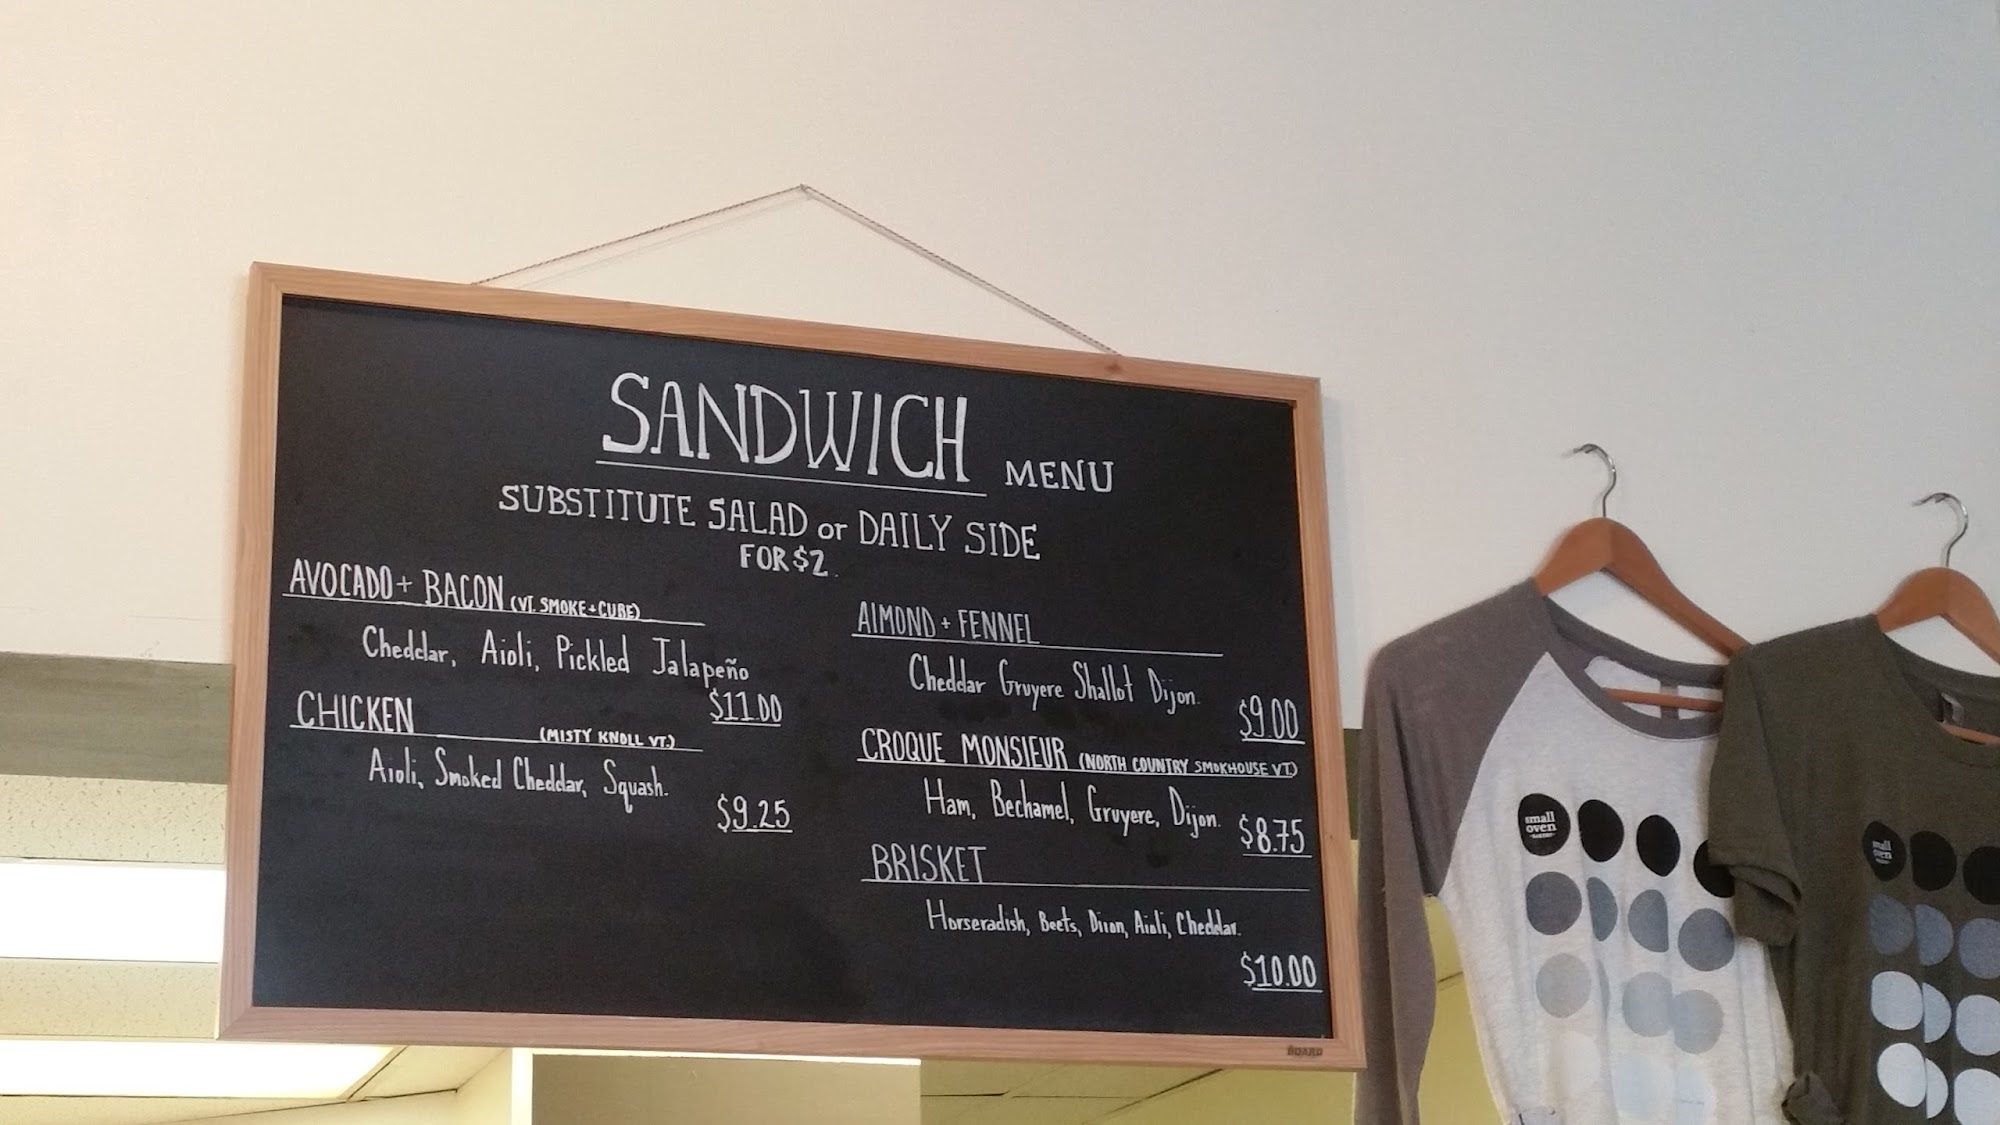 SANDWICH MENU
SUBSTITUTE SALAD or DAILY SIDE
FOR $2.
AVOCADO + BACON (VT. SMOKE + CURE)
Cheddar, Aioli, Pickled Jalapeño
$11.00
CHICKEN (MISTY KNOLL VT.)
Aioli, Smoked Cheddar, Squash.
$9.25
ALMOND + FENNEL
Cheddar Gruyere Shallot Dijon.
$9.00
CROQUE MONSIEUR (NORTH COUNTRY SMOKHOUSE VT.)
Ham, Bechamel, Gruyere, Dijon.
$8.75
BRISKET
Horseradish, Beets, Dijon, Aioli, Cheddar.
$10.00
BOARD
small
oven
BAKERY
small
oven